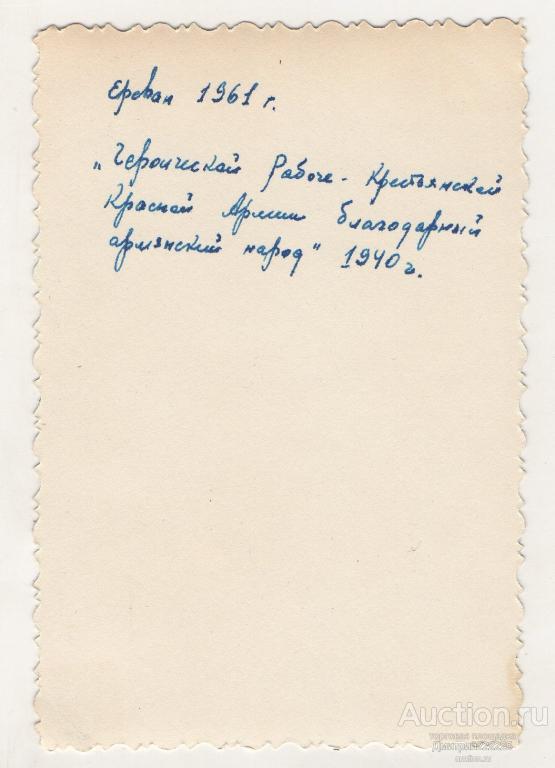 Ереван 1961 г.
„Героической Рабоче-Крестьянской
Красной Армии благодарный
армянский народ" 1940г.
Auction.ru
торговая площадка